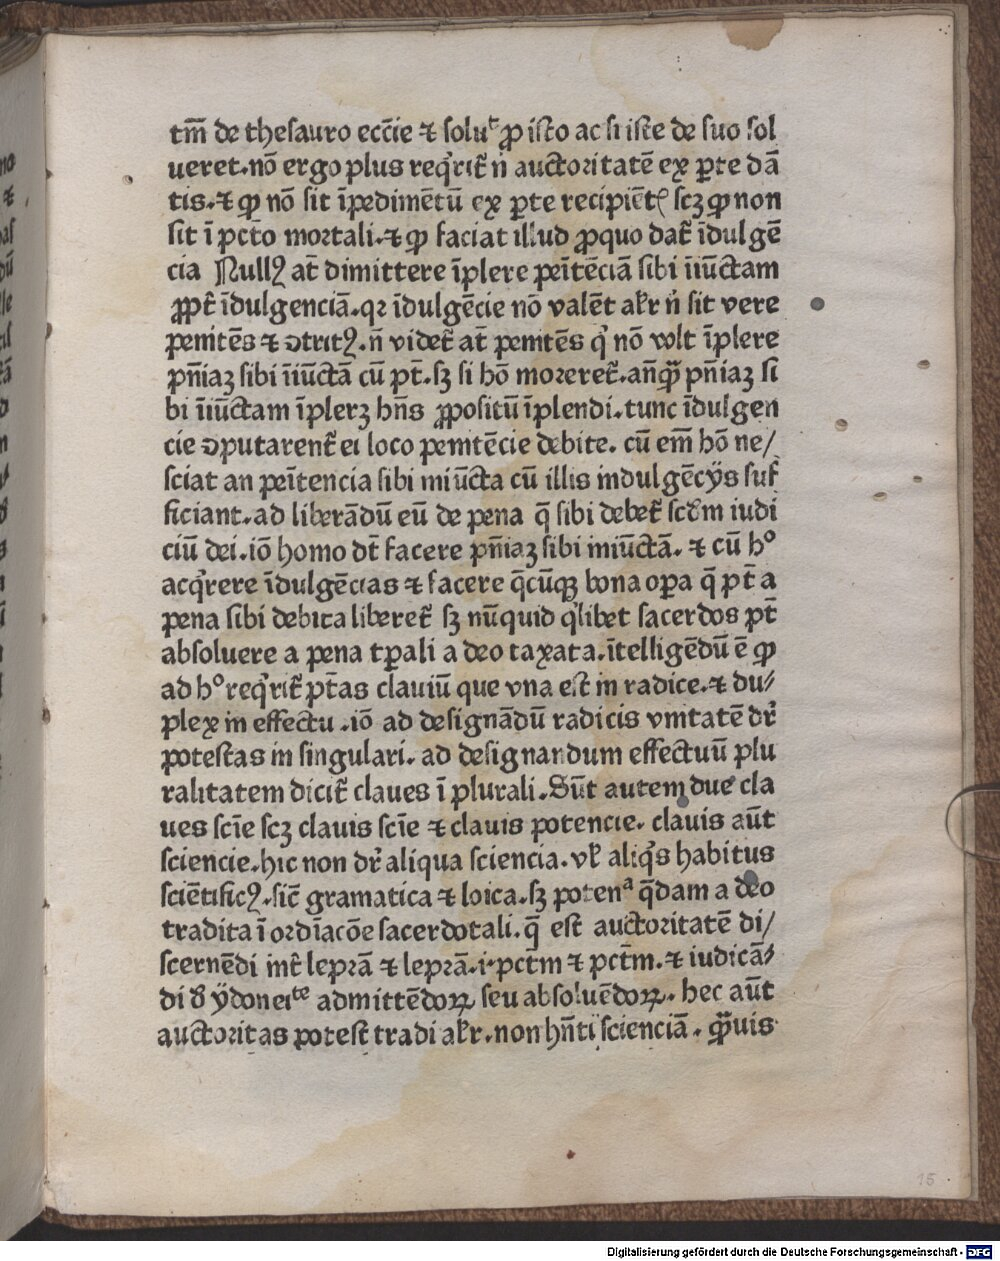 tm̄ de thesauro ecc̄ie ⁊ soluᵗ ꝓ isto ac si iste de suo sol
ueret.nō ergo plus reqͥrit̄ n̄ auctoritatē ex ꝑte dā
tis.⁊ ꝙ nō sit īpedimētū ex ꝑte recipiēt̄ scꝫ ꝙ non
sit ī pctō mortali.⁊ ꝙ faciat illud ꝓquo dat̄ īdulgē
cia Nullꝰ at̄ dimittere īplere penītēciā sibi īiūctam
ꝓpt̄ īdulgenciā.qꝛ īdulgēcie nō valēt al̄r n̄ sit vere
penitēs ⁊ ↄtritꝰ.n̄ videt̄ at̄ penitēs qͥ nō wlt īplere
pn̄iaꝫ sibi īiūctā cū pt̄.sꝫ si hō moreret̄.an̄qꝫ pn̄iaꝫ si
bi īiūctam īplerꝫ hn̄s ꝓpositū īplendi.tunc īdulgen
cie ↄputarent̄ ei loco penitēcie debite. cū em̄ hō ne/
sciat an penītencia sibi iniūcta cū illis indulgēcijs suf
ficiant.ad liberādū eū de pena q̄ sibi debet̄ scd̄m iudi
ciū dei.iō homo dt̄ facere pn̄iaꝫ sibi iniūctā. ⁊ cū hͦ
acqͥrere īdulgēcias ⁊ facere q̄cūqꝫ bona oꝑa q̄ pt̄ a
pena sibi debita liberet̄ sꝫ nūquid qͥlibet sacerdos pt̄
absoluere a pena tꝑali a deo taxata.ītelligēdū ē ꝙ
ad hͦ reqͥrit̄ pt̄as clauiū que vna est in radice.⁊ du⸗
plex in effectu .iō ad designādū radicis vnitatē dr̄
potestas in singulari. ad designandum effectuū plu
ralitatem dicit̄ claues ī plurali.Sūt autem due cla
ues scīe scꝫ clauis scīe ⁊ clauis potencie. clauis aūt
sciencie.hic non dr̄ aliqua sciencia.vl̄ aliqͥs habitus
sciētificꝰ.sic̄ gramatica ⁊ loica.sꝫ potenᵃ q̄dam a deo
tradita ī ordīacōe sacerdotali.q̄ est auctoritatē di/
scernēdi int̄ leprā ⁊ leprā.i.pctm̄ ⁊ pctm̄.⁊ iudicā⸗
di đ ẏdoneitᵉ admittēdoꝝ seu absoluēdoꝝ. hec aūt
auctoritas potest tradi al̄r.non hn̄ti scienciā. ꝙ̄uis
15
Digitalisierung gefördert durch die Deutsche Forschungsgemeinschaft - DFG